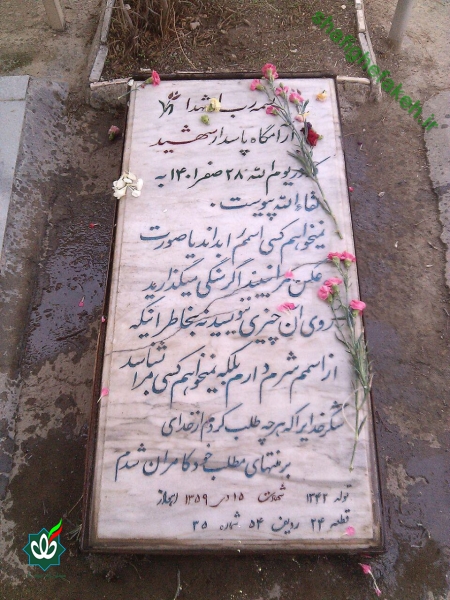 shafighefakeh.ir
رب الشهداء
آرامگاه پاسدار شهید
یوم الله ۲۸ صفر ۱۴۰۱ به
لقاءالله پیوست.
نمیخواهم کسی اسمم را بداند یا صورت
عکس مرا ببیند اگر سنگی میگذارید
روی آن چیزی ننویسید نه بخاطر اینکه
از اسمم شرم دارم بلکه نمیخواهم کسی مرا بشناسد
شکر خدایرا که هر چه طلب کردم از خدای
بر منتهای مطلب خود کامران شدم
تولد ۱۳۴۲ شهادت ۱۵ دی ۱۳۵۹ اهواز
قطعه ۲۴ ردیف ۵۴ شماره ۳۵